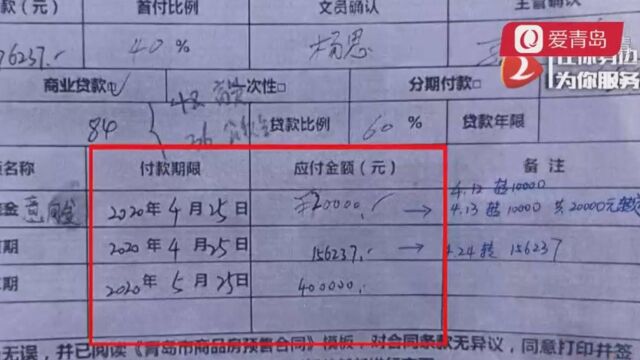 爱青岛
首付比例
文员确认
主管确认
76237.-
40%
在你身边
为你服务
商业贷款□
一次性□
分期付款□
84
48
36
贷款比例
60%
贷款年限
项名称
付款期限
应付金额（元）
备注
金 意向金
2020年4月25日
¥20000.-
→
4.12 转10000
4.13 转10000 共20000元
期
2020年4月25日
156237.-
→
4.24 转 156237
期
2020年5月25日
400000.-
无误，并已阅读《青岛市商品房预售合同》模板，对合同条款无异议，同意打印并签